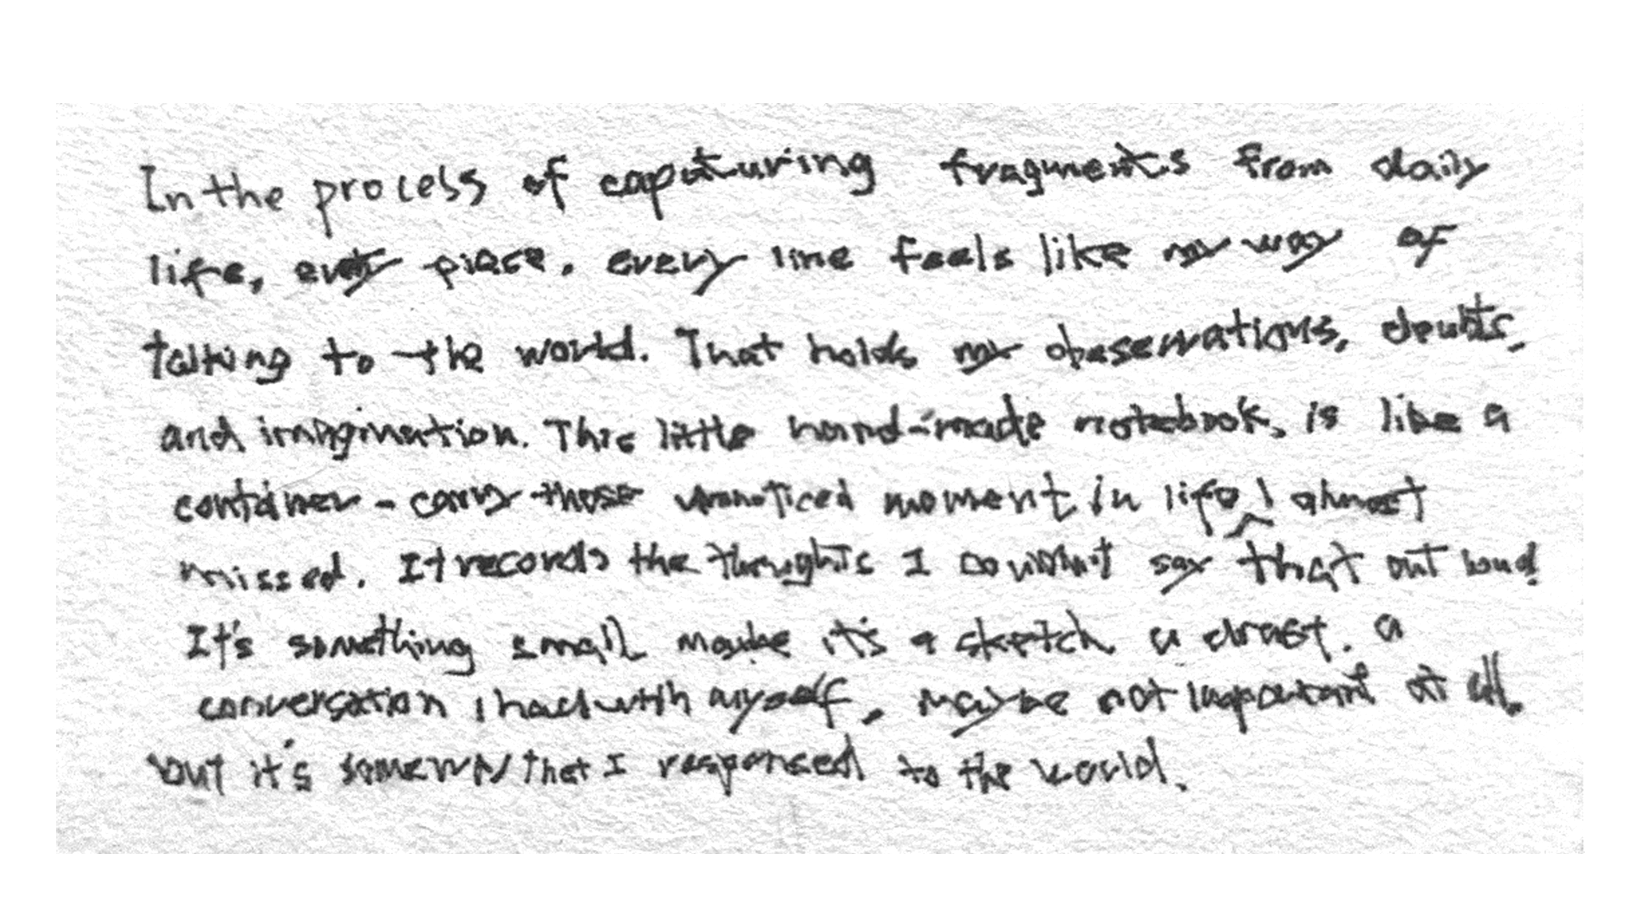 In the process of caputuring fragments from daily
life, every piece, every line feels like my way of
talking to the world. That holds my obaservations, doubts,
and imagination. This little hand-made notebook, is like a
container - carry those unnoticed moment in life I almost
missed. It records the thoughts I couldn't say that out loud
It's something small maybe it's a sketch, a draft, a
conversation I had with myself, maybe not important at all,
but it's someway that I responsed to the world.